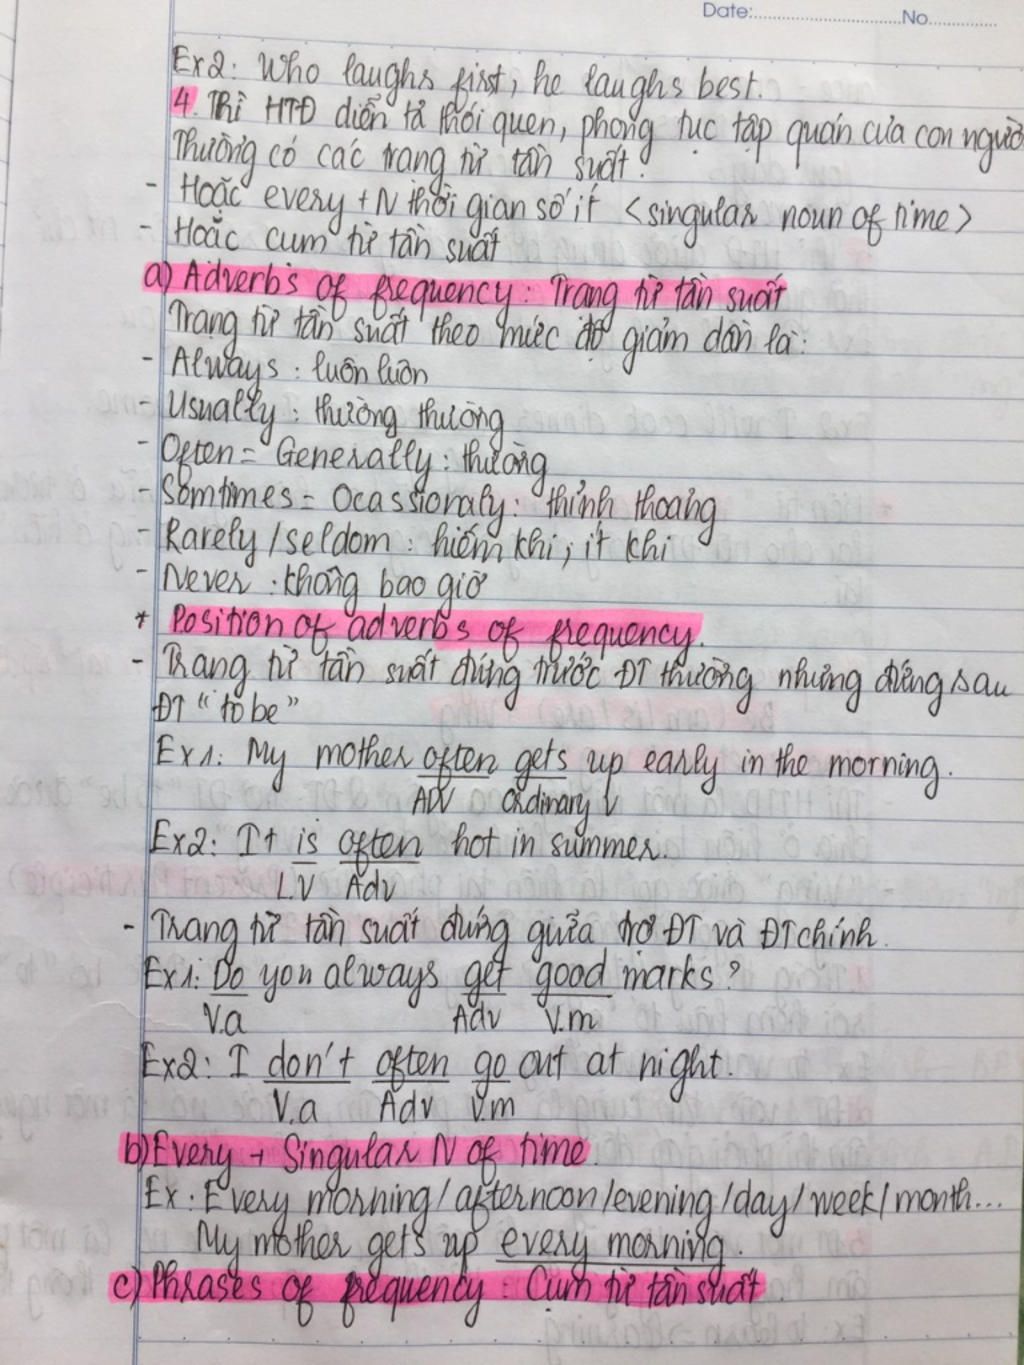 Date:..............................No...............
Ex2: Who laughs first, he laughs best.
4. Thì HTĐ diễn tả thói quen, phong tục tập quán của con người
Thường có các trạng từ tần suất.
- Hoặc every + N thời gian số ít <singular noun of time>
- Hoặc cụm từ tần suất
a) Adverbs of frequency: Trạng từ tần suất
Trạng từ tần suất theo mức độ giảm dần là:
- Always: luôn luôn
- Usually: thường thường
- Often = Generally: thường
- Somtimes = Ocassionaly: thỉnh thoảng
- Rarely / seldom: hiếm khi, ít khi
- Never: không bao giờ
* Position of adverbs of frequency.
- Trạng từ tần suất đứng trước ĐT thường nhưng đứng sau
ĐT "to be"
Ex1: My mother often gets up early in the morning.
ADV Ordinary V
Ex2: It is often hot in summer.
L.V Adv
- Trạng từ tần suất đứng giữa trợ ĐT và ĐT chính.
Ex1: Do you always get good marks?
V.a Adv V.m
Ex2: I don't often go out at night.
V.a Adv V.m
b) Every + Singular N of time.
Ex: Every morning/afternoon/evening/day/week/month...
My mother gets up every morning.
c) Phrases of frequency: Cụm từ tần suất.